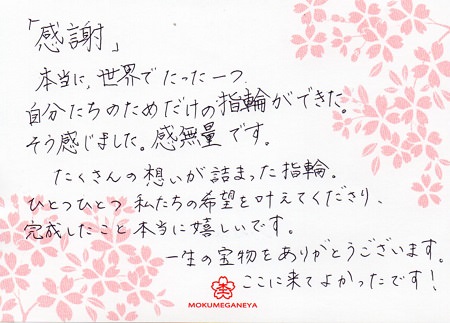 「感謝」
本当に、世界でたった一つ
自分たちのためだけの指輪ができた。
そう感じました。感無量です。
たくさんの想いが詰まった指輪。
ひとつひとつ 私たちの希望を叶えてくださり、
完成したこと本当に嬉しいです。
一生の宝物をありがとうございます。
ここに来てよかったです!
MOKUMEGANEYA